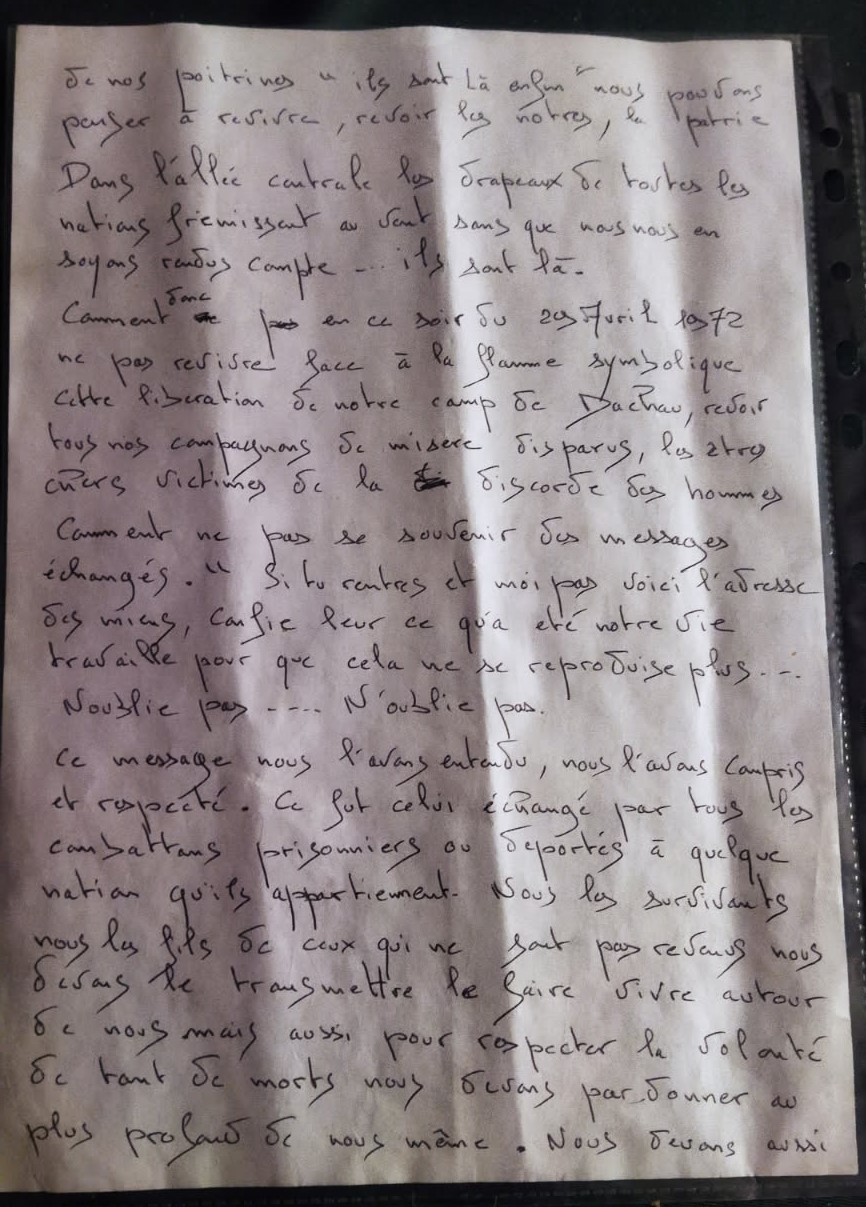 de nos poitrines " ils sont là enfin " nous pouvons
penser à revivre, revoir les notres, la patrie
Dans l'allée centrale les drapeaux de toutes les
nations frémissent au vent sans que nous nous en
soyons rendus compte ... ils sont là.
Comment donc en ce soir du 29 Avril 1972
ne pas revivre face à la flamme symbolique
cette liberation de notre camp de Dachau, revoir
tous nos compagnons de misere disparus, les etres
chers victimes de la discorde des hommes
Comment ne pas se souvenir des messages
échangés. " Si tu rentres et moi pas voici l'adresse
des miens, confie leur ce qu'a eté notre vie
travaille pour que cela ne se reproduise plus ...
Noublie pas .... N'oublie pas.
Ce message nous l'avons entendu, nous l'avons compris
et respecté. Ce fut celui échangé par tous les
combattans prisonniers ou deportés à quelque
nation qu'ils appartiennent. Nous les survivants
nous les fils de ceux qui ne sont pas revenus nous
devons le transmettre le faire vivre autour
de nous mais aussi pour respecter la volonté
de tant de morts nous devons pardonner au
plus profond de nous même. Nous devons aussi